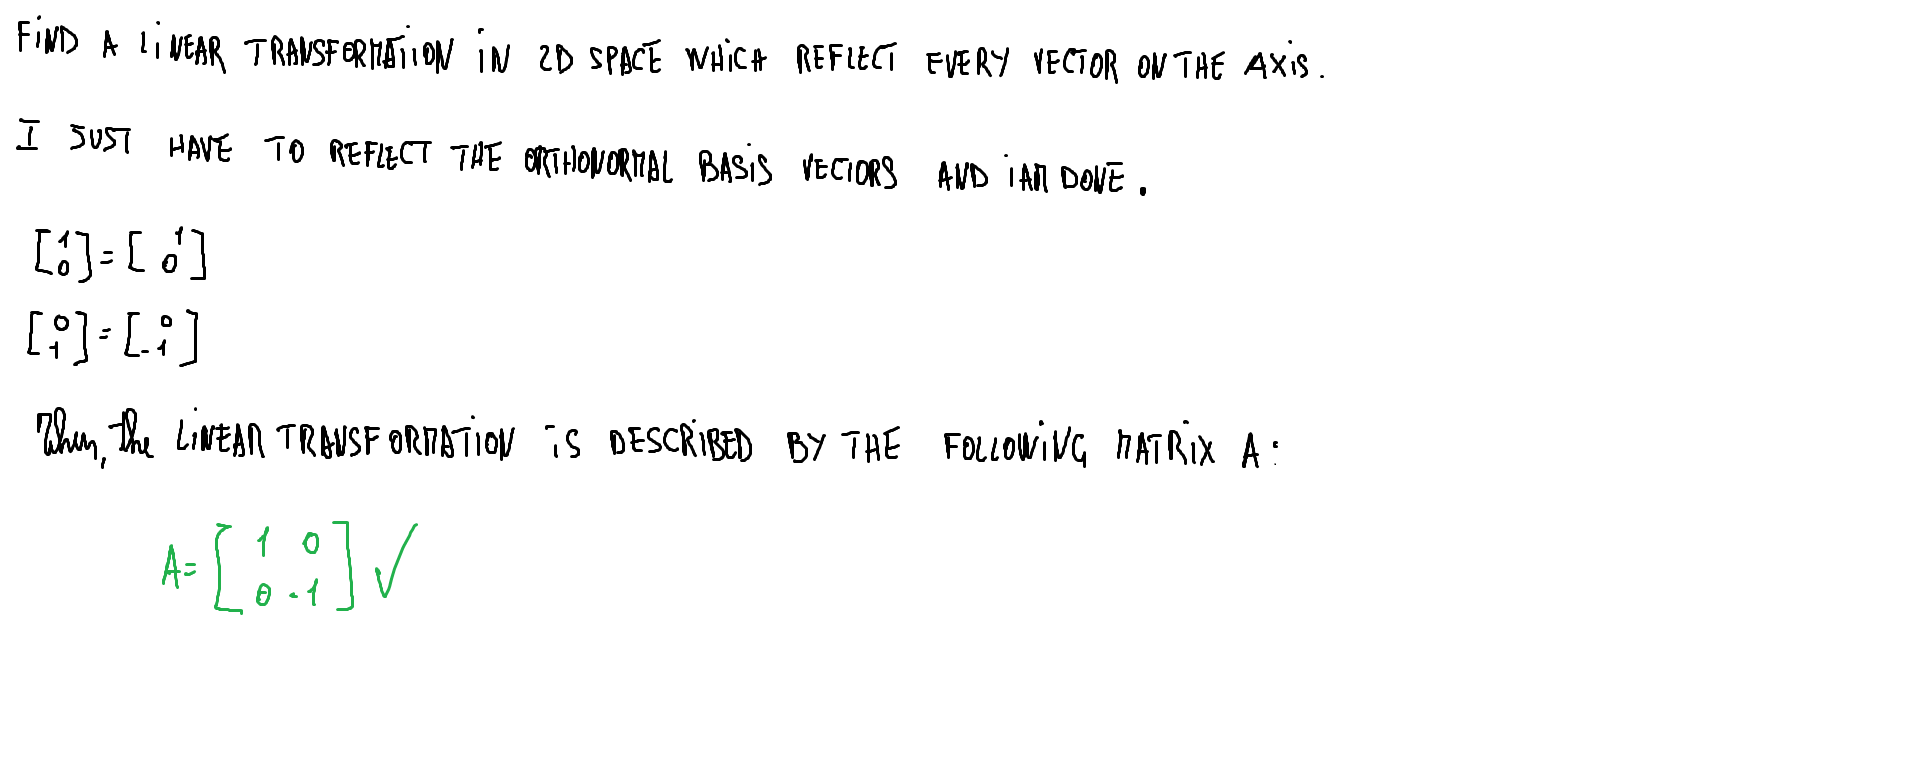 FIND A LINEAR TRANSFORMATIION IN 2D SPACE WHICH REFLECT EVERY VECTOR ON THE AXIS.
I JUST HAVE TO REFLECT THE ORTHONORMAL BASIS VECTORS AND I AM DONE.
[1 0] = [1 0]
[0 1] = [0 -1]
Then, the LINEAR TRANSFORMATION IS DESCRIBED BY THE FOLLOWING MATRIX A:
A = [1 0
0 -1] ✓